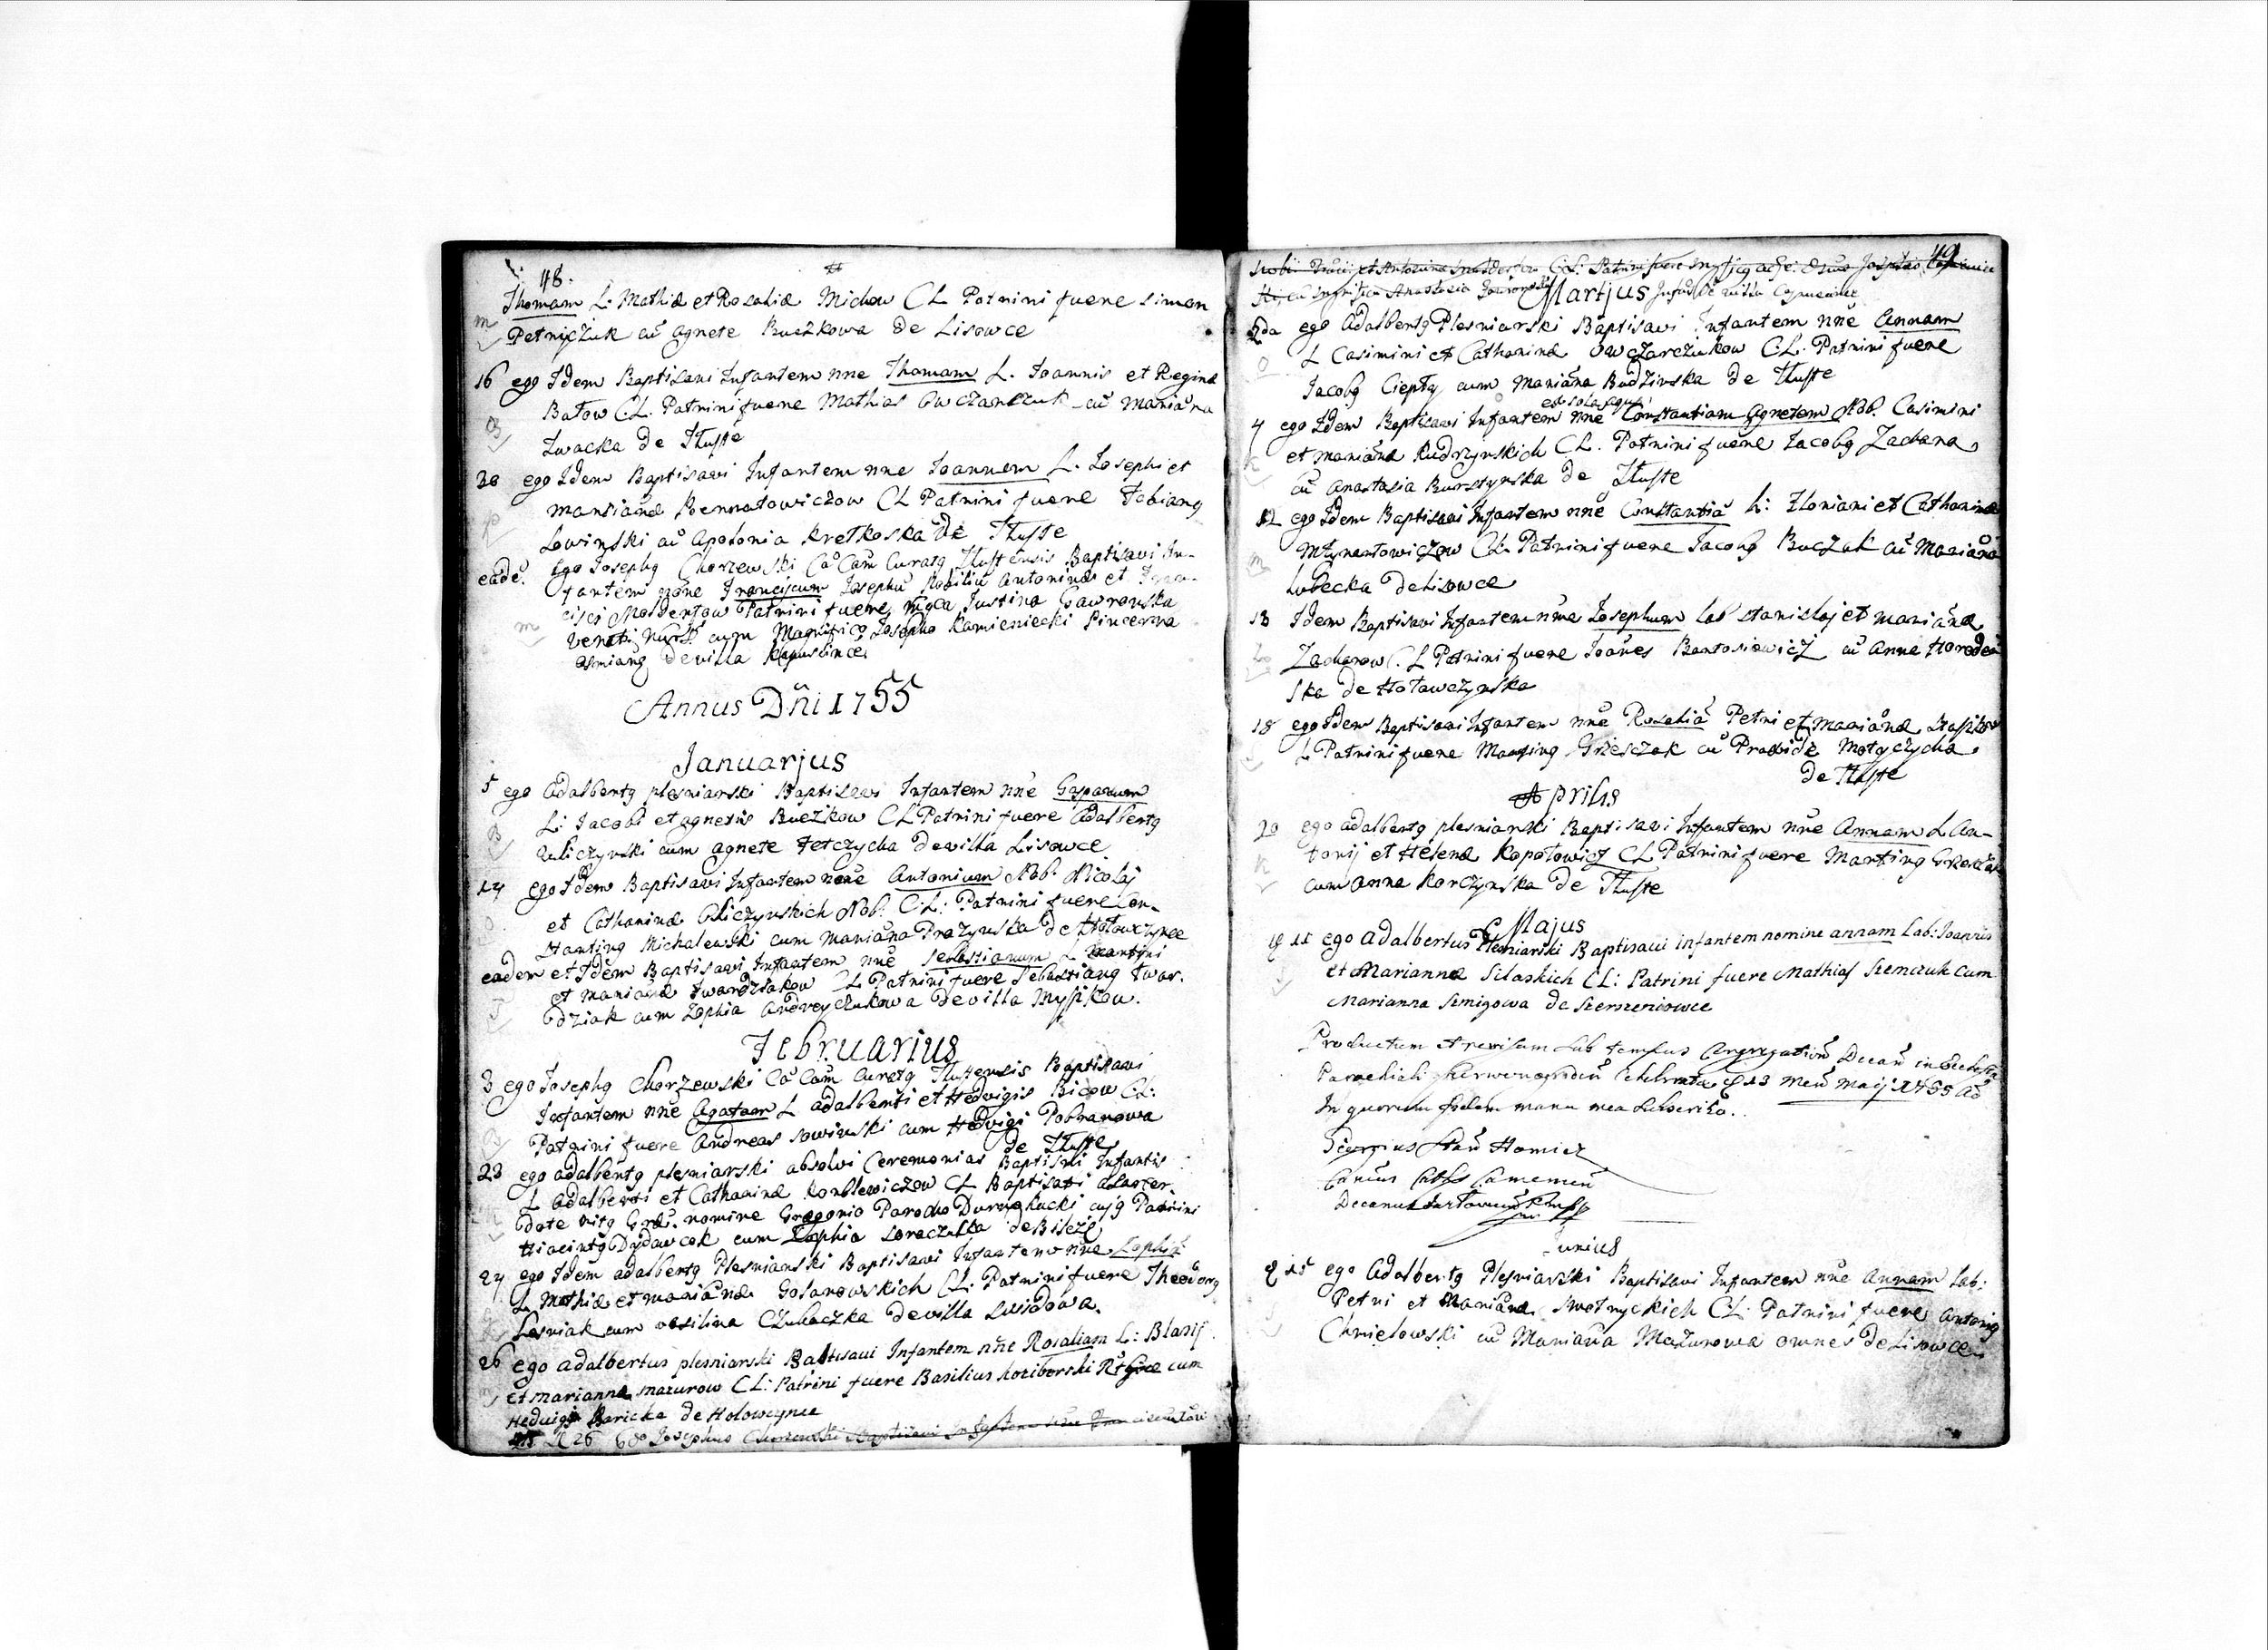 48.
Thomam L. Mathiæ et Rosaliæ Michow CL Patrini fuere Simon
m Petryczuk cū Agnete Buczkowa de Lisowce
16 ego Idem Baptisavi Infantem nne Thomam L. Joannis et Reginæ
Batow C.L. Patrini fuere Mathias Owczarczuk cū Mariāna
B Iwacka de Tłuste
20 ego Idem Baptisavi Infantem nne Joannem L. Josephi et
Mariānæ Bernatowiczow CL Patrini fuere Fabiang
Lowinski cū Apolonia Kretkoska de Tłuste
eadē. Ego Josephg Chorzewski Cā Cam Curatg Tłustensis Baptisavi In-
fantem nōne Franciscum Josephū Antoninæ et Fran-
cisci Patrini fuere Justina Gawronska
m cum Magnifico Josepho Kamieniecki Pincerna
de villa Kapuscince
Annus Dñi 1755
Januarjus
5 ego Adalbertg plesniarski Baptisavi Infantem nne Gasparum
L: Jacobi et Agnetis Buczkow CL Patrini fuere Adalbertg
B Zuliczynski cum Agnete Fetczycha de villa Lisowce
14 ego Idem Baptisavi Infantem nōne Antonium Nob. Nicolaj
et Catharinæ Oliczynskich Nob. C:L: Patrini fuere Con-
stanting Michalewski cum Mariāna Prazynska de Hołowczynce
eadem et Idem Baptisavi Infantem nne Sebastianum L Martini
et Mariānæ Twardziakow CL Patrini fuere Sebastiang Twar-
dziak cum Zophia Andreyczukowa de villa Myszkow.
Februarius
3 ego Josephg Chorzewski Cā Cām Curatg Tłustensis Baptisavi
Infantem nne Agatam L Adalberti et Hedvigis Bicow CL:
B Patrini fuere Andreas Sowinski cum Hedvigi Pobranowa
de Tłuste
23 ego adalbertg plesniarski absolvi Ceremonias Baptismi Infantis
L Adalberti et Catharinæ CL Baptisati a Sacer-
dote ritg nomine Gregorio Parocho cujg Patrini
Hiacintg cum Zophia de Bilcze
24 ego Idem adalbertg Plesniarski Baptisavi Infantem nne Zophiā
L. Mathiæ et Mariānæ Golanowskich CL: Patrini fuere Theodorg
Lesniak cum Wasilina Czubaczka de villa Swidowa.
26 ego adalbertus plesniarski Babtisavi Infantem nñe Rosaliam L: Blasij
et Mariannæ Mazurow CL: Patrini fuere Basilius Koziborski cum
Hedvigi Baricka de Holowcynce
26 Ego Josephus Chorzewski Baptisavi Infantem nne
49
C:L: Patrini fuere
Anastasia de villa
Martjus
2da ego Adalbertg Plesniarski Baptisavi Infantem nne Annam
L Casimiri et Catharinæ Owczarczukow C:L. Patrini fuere
Jacobg Ciepły cum Mariāna Budzinska de Tłuste
ex sola aqua
4 ego Idem Baptisavi Infantem nne Constantiam Agnetem Nob. Casimiri
et Mariānæ Rudzynskich C.L. Patrini fuere Jacobg Zachara
cū Anastasia Bursztynska de Tłuste
12 ego Idem Baptisavi Infantem nne Constantiā L: Floriani et Catharinæ
m Młynartowiczow CL. Patrini fuere Jacobg Buczak cū Mariāna
Lubecka de Lisowce
13 Idem Baptisavi Infantem nne Josephum Lab Stanislaj et Mariānæ
Zacharow C.L Patrini fuere Joānes Bartosiewicz cū Anna Horoden
ska de Hoławczynska
18 ego Idem Baptisavi Infantem nne Rosaliā Petri et Mariānæ
L Patrini fuere Marting Grzesczak cū Praxide Motyczycha
de Tłuste
Aprilis
20 ego adalbertg plesniarski Baptisavi Infantem nne Annam L An-
tonij et Helenæ Kopotowicz CL Patrini fuere Marting
cum Anna Korczynska de Tłuste
Majus
11 ego adalbertus Plesniarski Baptisavi infantem nomine annam Lab: Joannis
et Mariannæ Silaskich CL: Patrini fuere Mathias Szemczuk cum
Marianna Smigowa de Szerszeniowce
Productum et revisum sub tempus Congregationis Decan in Ecclesia
Parochiali celebratæ 13 Mens Maij 1755 Ao
In quorum fidem manu mea subscribo.
Georgius Homicz
Decanus
Junius
15 ego Adalbertg Plesniarski Baptisavi Infantem nne Annam Lab:
Petri et Mariānæ Smotryckich CL: Patrini fuere Antong
Chmielowski cū Mariāna Mazurowa omnes de Lisowce